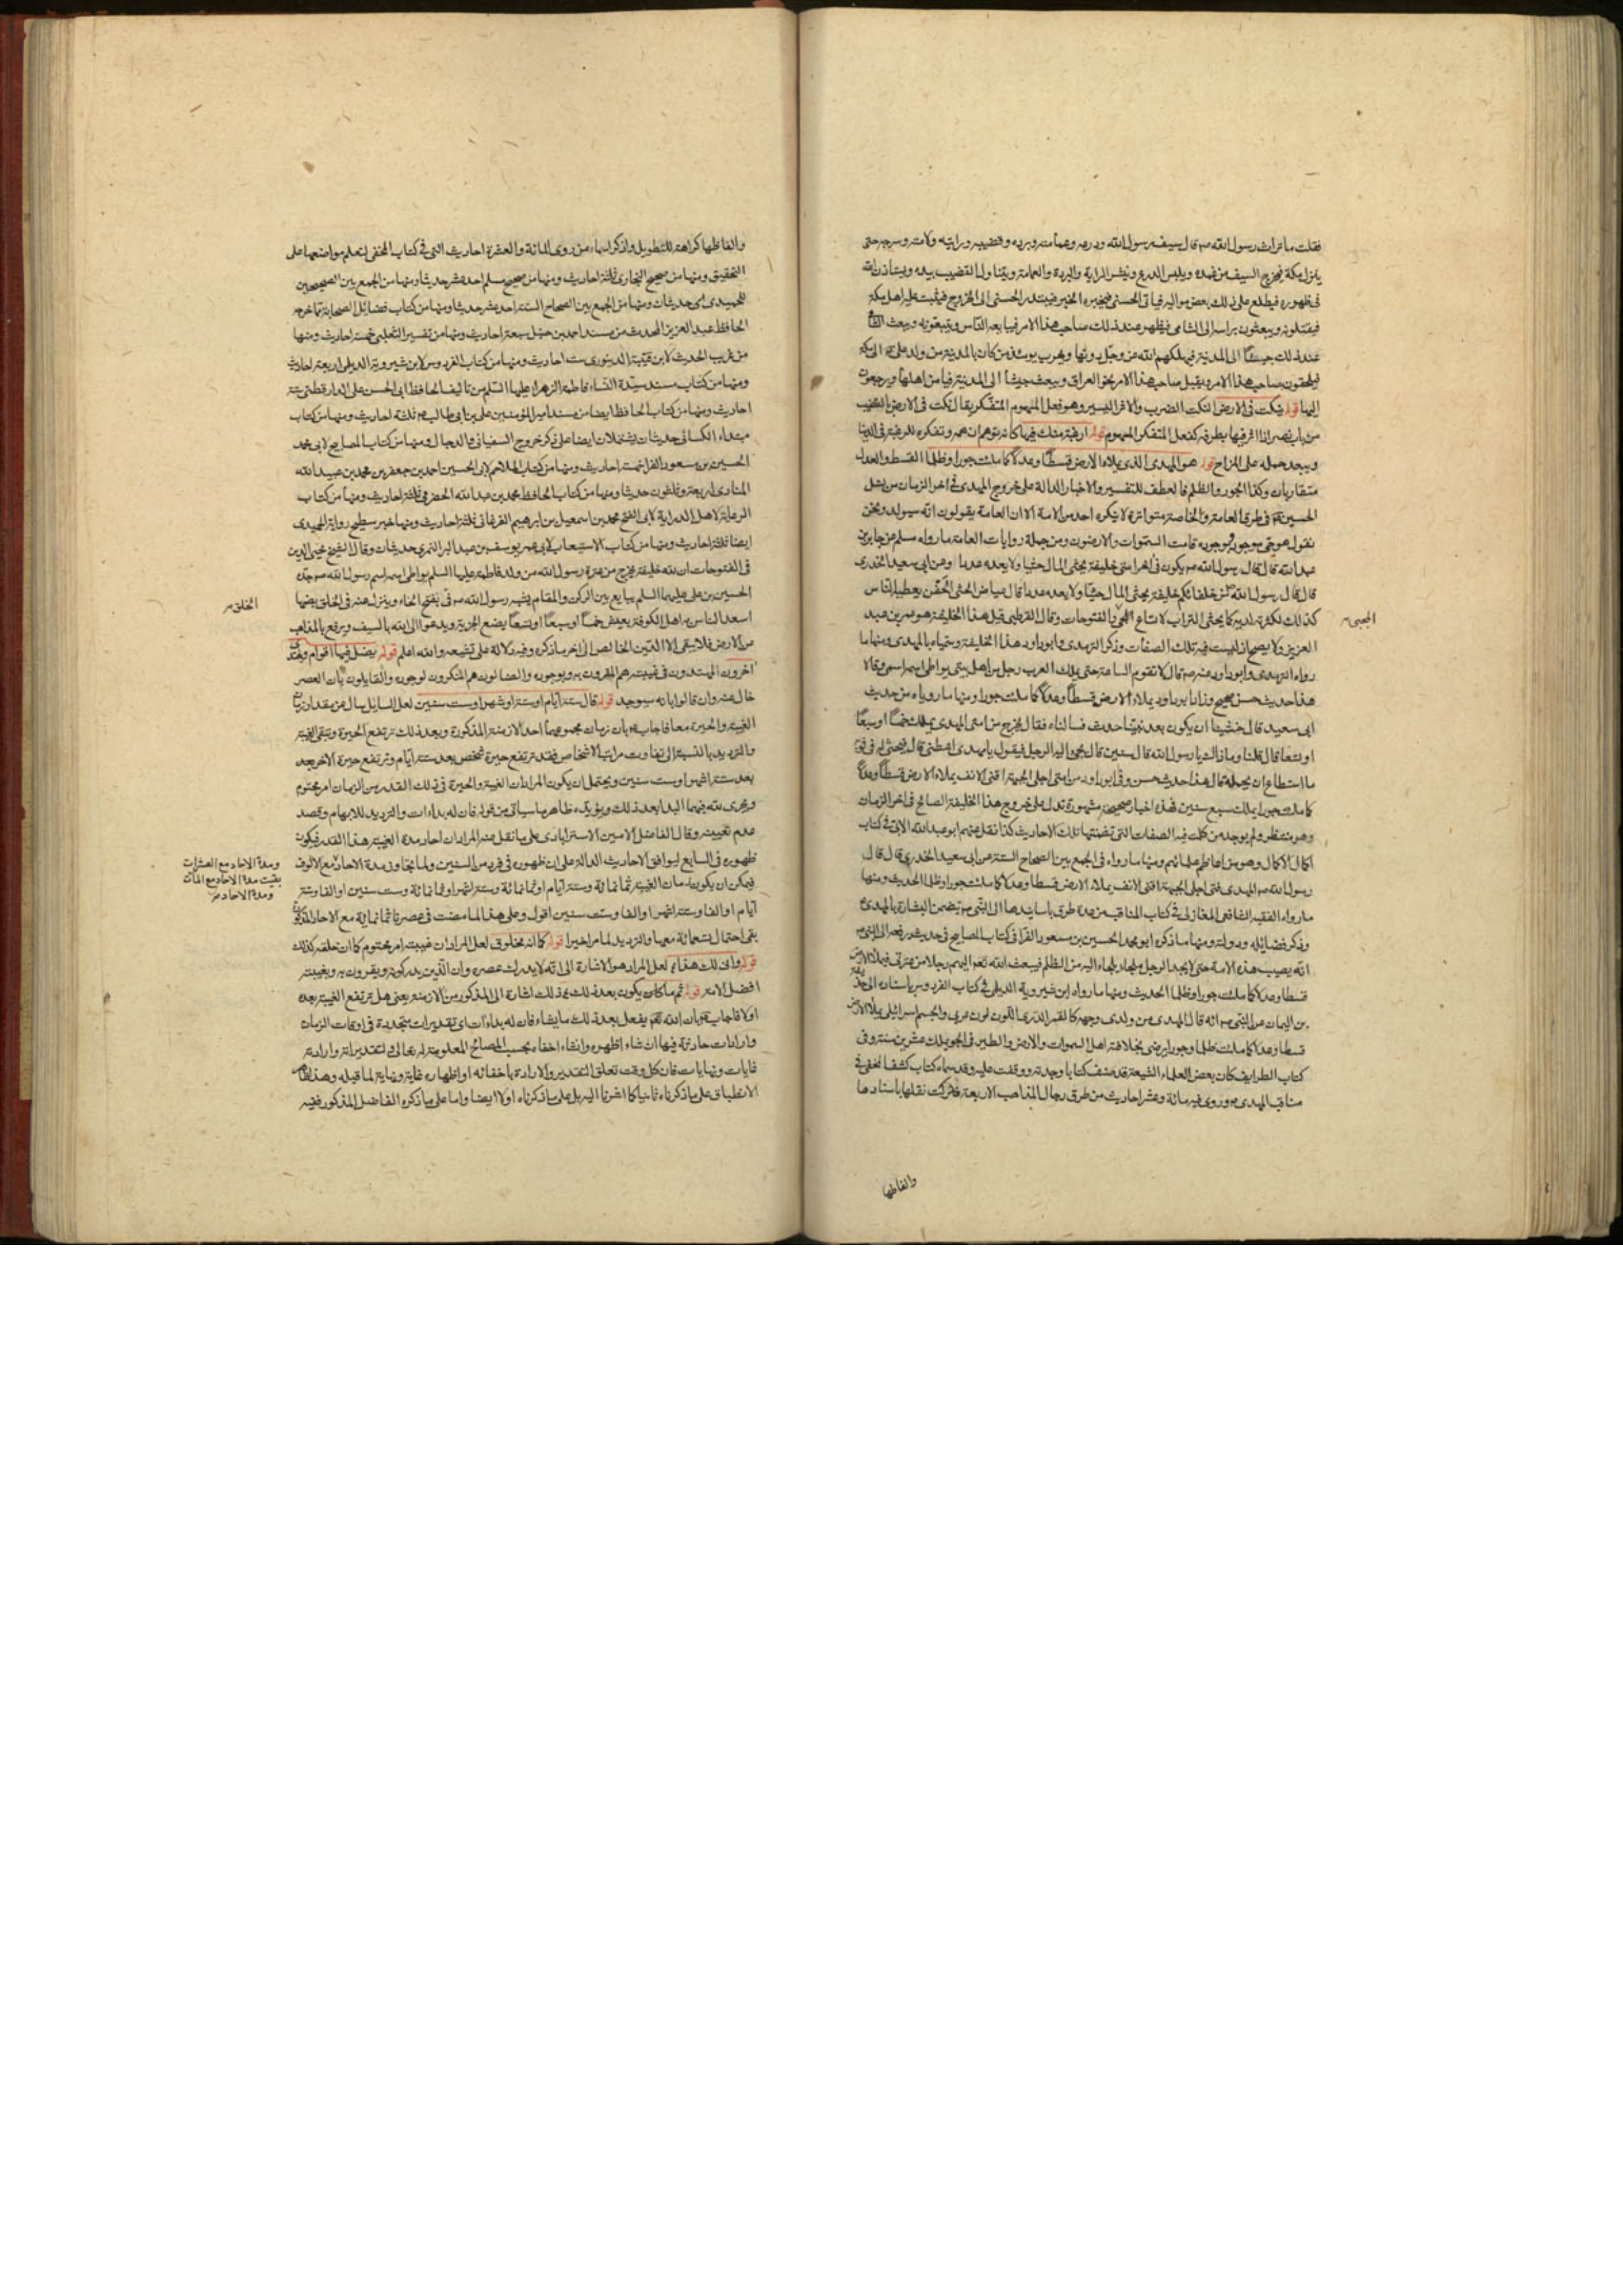 فقلت ما تراث رسول الله ص قال سيف رسول الله ودرعه وعمامته وبرده وقضيبه ورايته ولامته وسرجه حتى
ينزل مكة فيخرج السيف من غمده ويلبس الدرع وينشر الراية والبردة والعمامة ويتناول القضيب بيده ويستأذن الله
فى ظهوره فيطلع على ذلك بعض مواليه فياتى الحسنى فيخبره الخبر فيبتدر الحسنى الى الخروج فيثبت عليه اهل مكة
فيقتلونه ويبعثون براسه الى الشامى فيظهر عند ذلك صاحب هذا الامر فيبايعه الناس ويتبعونه ويبعث الشامى
عند ذلك جيشًا الى المدينة فيهلكهم الله عز وجل دونها ويهرب يومئذ من كان بالمدينة من ولد على ع الى مكة
فيلحقون صاحب هذا الامر ويقبل صاحب هذا الامر نحو العراق ويبعث جيشًا الى المدينة فيامن اهلها ويرجعون
اليها قوله ينكت فى الارض النكت الضرب والاثر اليسير وهو فعل المهموم المتفكر يقال نكت فى الارض بالقضيب
من باب نصر اذا اثر فيها بطرفه كفعل المتفكر المهموم قوله ارغبة منك فيها كانه توهم ان همه وتفكره للرغبة فى الدنيا
ويبعد حمله على المزاح قوله هو المهدى الذى يملاء الارض قسطًا وعدلًا كما ملئت جورا وظلما القسط والعدل
متقاربان وكذا الجور والظلم فالعطف للتفسير والاخبار الدالة على خروج المهدى فى اخر الزمان من نسل
الحسين ع فى طرق العامة والخاصة متواترة لا ينكره احد من الامة الا ان العامة يقولون انه سيولد ونحن
نقول هو حى موجود وبوجوده قامت السموات والارضون ومن جملة روايات العامة ما رواه مسلم عن جابر بن
عبد الله قال قال رسول الله ص يكون فى اخر امتى خليفة يحثى المال حثيا ولا يعده عدا وعن ابى سعيد الخدرى
قال قال رسول الله ص من خلفائكم خليفة يحثى المال حثيًا ولا يعده عدا قال عياض الحثى الحفن يعطيه الناس
كذلك لكثرته لديه كما يحثى التراب لاتساع والفتوحات وقال القرطبى قيل هذا الخليفة هو عمر بن عبد
المجبى
العزيز ولا يصح اذ ليست فيه تلك الصفات وذكر الترمذى وابو داود هذا الخليفة وسمياه بالمهدى ومنها ما
رواه الترمذى وابو داود عنه ص قال لا تقوم الساعة حتى يملك العرب رجل من اهل بيتى يواطى اسمه اسمى وقالا
هذا حديث حسن صحيح وزاد ابو داود يملاء الارض قسطًا وعدلًا كما ملئت جورا ومنها ما روياه من حديث
ابى سعيد قال خشينا ان يكون بعد نبينا حدث فسالناه فقال يخرج من امتى المهدى يملك خمسًا او سبعًا
او تسعا قال قلنا وما ذاك يا رسول الله قال سنين قال يجئ اليه الرجل فيقول يا مهدى اعطنى قال فيحثى له فى ثوبه
ما استطاع ان يحمله قال هذا حديث حسن وفى ابو داود من امتى اجلى الجبهة اقنى الانف يملاء الارض قسطًا وعدلًا
كما ملئت جورا يملك سبع سنين فهذه اخبار صحيحة مشهورة تدل على خروج هذا الخليفة الصالح فى اخر الزمان
وهو منتظر ولم يوجد من كملت فيه الصفات التى تضمنتها تلك الاحاديث كذا نقل عنهم ابو عبد الله الابى فى كتاب
اكمال الاكمال وهو من اعاظم علمائهم ومنها ما رواه فى الجمع بين الصحاح الستة عن ابى سعيد الخدرى قال قال
رسول الله ص المهدى فتى اجلى الجبهة اقنى الانف يملاء الارض قسطا وعدلا كما ملئت جورا وظلما الحديث ومنها
ما رواه الفقيه الشافعى المغازلى فى كتاب المناقب من عدة طرق باسانيدها الى النبى ص يتضمن البشارة بالمهدى
وذكر فضايله ودولته ومنها ما ذكره ابو محمد الحسين بن مسعود الفرا فى كتاب المصابيح فى حديث يرفعه الى النبى ص
انه يصيب هذه الامة حتى لا يجد الرجل ملجاء يلجاء اليه من الظلم فيبعث الله تعم اليهم رجلا من عترتى فيملاء الارض
قسطا وعدلا كما ملئت جورا وظلما الحديث ومنها ما رواه ابن شيروية الديلمى فى كتاب الفردوس باسناده الى حذيفة
بن اليمان عن النبى ص انه قال المهدى من ولدى وجهه كالقمر الدرى اللون لون عربى والجسم اسرائيلى يملاء الارض
قسطا وعدلا كما ملئت ظلما وجورا يرضى بخلافته اهل السموات والارض والطير فى الجو يملك عشرين سنة وفى
كتاب الطرايف كان بعض العلماء الشيعة قد صنف كتابا وجدته ووقفت عليه وقد سماه كتاب كشف المخفى فى
مناقب المهدى ع وروى فيه مائة وعشر احاديث من طرق رجال المذاهب الاربعة فتركت نقلها باسنادها
والفاظها
والفاظها كراهة للتطويل واذكر اسماء من روى المائة والعشرة احاديث التى فى كتاب المخفى لتعلم مواضعها على
التحقيق ومنها من صحيح البخارى ثلثة احاديث ومنها من صحيح مسلم احد عشر حديثا ومنها من الجمع بين الصحيحين
للحميدى حديثان ومنها من الجمع بين الصحاح الستة احد عشر حديثا ومنها من كتاب فضائل الصحابة مما خرجه
الحافظ عبد العزيز المحدث من مسند احمد بن حنبل سبعة احاديث ومنها من تفسير الثعلبى خمسة احاديث ومنها
من غريب الحديث لابن قتيبة الدينورى ست احاديث ومنها من كتاب الفردوس لابن شيروية الديلمى اربعة احاديث
ومنها من كتاب مسند سيدة النساء فاطمة الزهراء عليها السلم من تاليف الحافظ ابى الحسن على الدارقطنى ستة
احاديث ومنها من كتاب الحافظ ايضا من مسند امير المؤمنين على بن ابى طالب ع ثلثة احاديث ومنها من كتاب
مبتداء الكسائى حديثان يشتملان ايضا على ذكر خروج السفيانى والدجال ومنها من كتاب المصابيح لابى محمد
الحسين بن مسعود الفرا خمسة احاديث ومنها من كتاب الملاحم لابى الحسين احمد بن جعفر بن محمد بن عبيد الله
المنادى اربعة وثلثون حديثا ومنها من كتاب الحافظ محمد بن عبد الله الحضرمى ثلثة احاديث ومنها من كتاب
الرعاية لاهل الدراية لابى الفتح محمد بن اسمعيل بن ابرهيم الفرغانى ثلثة احاديث ومنها خبر سطيح رواية الحميدى
ايضا ثلثة احاديث ومنها من كتاب الاستيعاب لابى عمر يوسف بن عبد البر النمرى حديثان وقال الشيخ محيى الدين
فى الفتوحات ان لله خليفة يخرج من عترة رسول الله من ولد فاطمة عليها السلم يواطى اسمه اسم رسول الله ص جده
الحسين بن على عليهما السلم يبايع بين الركن والمقام يشبه رسول الله ص فى بفتح الخاء وينزل عنه فى الخلق بضمها
الخلق
اسعد الناس به اهل الكوفة يعيش خمسًا او سبعًا او تسعًا يضع الجزية ويدعوا الى الله بالسيف ويرفع المذاهب
من الارض فلا يبقى الا الدين الخالص الى اخر ما ذكره وفيه دلالة على تشيعه والله اعلم قوله يضل فيها اقوام ويهتدى
اخرون المهتدون فى غيبته هم المقرون به وبوجوده والضالون هم المنكرون لوجوده والقايلون بان العصر
خال عنه وان قالوا بانه سيوجد قوله قال ستة ايام او ستة اشهر او ست سنين لعل السايل سال عن مقدار زمان
الغيبة والحيرة معا فاجاب ع بان زمان مجموعهما احد الازمنة المذكورة وبعد ذلك ترتفع الحيرة وتبقى الغيبة
والترديد بالنسبة الى تفاوت مراتب الاشخاص فقد ترتفع حيرة شخص بعد ستة ايام وترتفع حيرة الاخر بعد
بعد ستة اشهر او ست سنين ويحتمل ان يكون المراد ان الغيبة والحيرة فى ذلك القدر من الزمان امر محتوم
ويجرى لله فيهما البدا بعد ذلك ويؤيده ظاهر ما سياتى من قوله فان له بداءات والترديد للابهام وقصد
عدم تعيينه وقال الفاضل الامين الاسترابادى على ما نقل عنه المراد ان احاد مدة الغيبة هذا القدر فيكون
ظهوره فى السابع ليوافق الاحاديث الدالة على ان ظهوره فى فرد من السنين ولما تجاوز مدة الاحاد مع الالوف
ومدة الاحاد مع العشرات
بقيت مدة الاحاد مع المآت
ومدة الاحاد
فيمكن ان يكون زمان الغيبة ثمانمائة وستة ايام او ثمانمائة وستة اشهر او ثمانمائة وست سنين او الفا وستة
ايام او الفا وستة اشهر او الفا وست سنين اقول وعلى هذا لما مضت فى عصرنا ثمانمائة مع الاحاد المذكورة
بقى احتمال تسعمائة معها والترديد لما مر اخيرا قوله كما انه مخلوق لعل المراد ان غيبته امر محتوم كما ان خلقه كذلك
قوله وانى لك هذا لعل المراد هو الاشارة الى انه لا يدرك عصره وان الذين يدركونه ويقرون به وبغيبته
افضل الامة قوله ثم ما كان يكون بعد ذلك ذلك اشارة الى المذكور من الازمنة يعنى هل ترتفع الغيبة بعده
او لا فاجاب ع بان الله تعم يفعل بعد ذلك ما يشاء فان له بداءات اى تقديرات متجددة فى اوقات الزمان
وارادات حادثة فيها ان شاء اظهره وان شاء اخفاه بحسب المصالح المعلومة له تعالى وفى تقديراته وارادته
غايات ونهايات فان كل وقت تعلق التقدير والارادة باخفائه او اظهاره غاية ونهاية لما قبله وهذا ظاهر
الانطباق على ما ذكرناه ثانيا كما اشرنا اليه بل على ما ذكرناه اولا ايضا واما على ما ذكره الفاضل المذكور ففيه